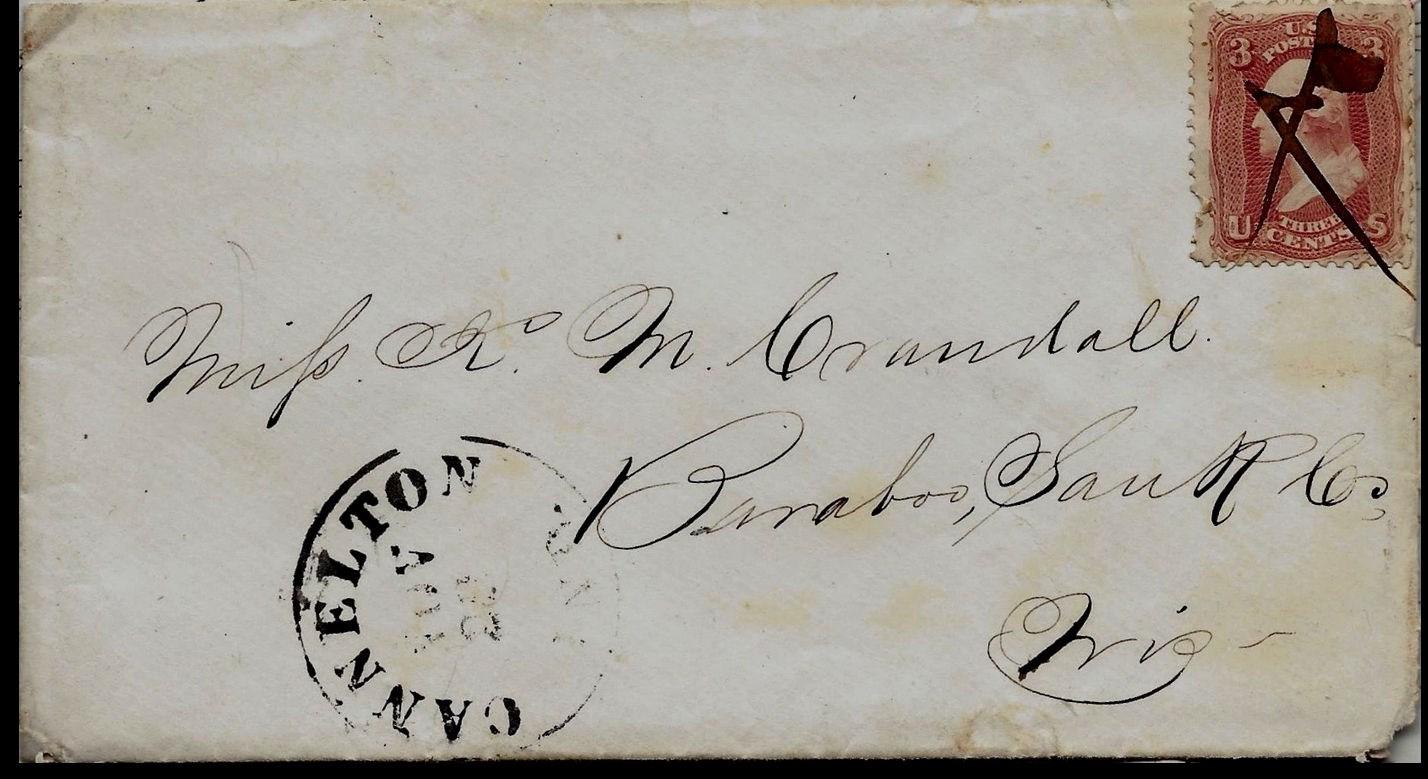 U.S.
POSTAGE
3 3
U THREE CENTS S
Miſs. R. M. Crandall.
Baraboo, Sauk Co,
Wis-
CANNELTON
NOV